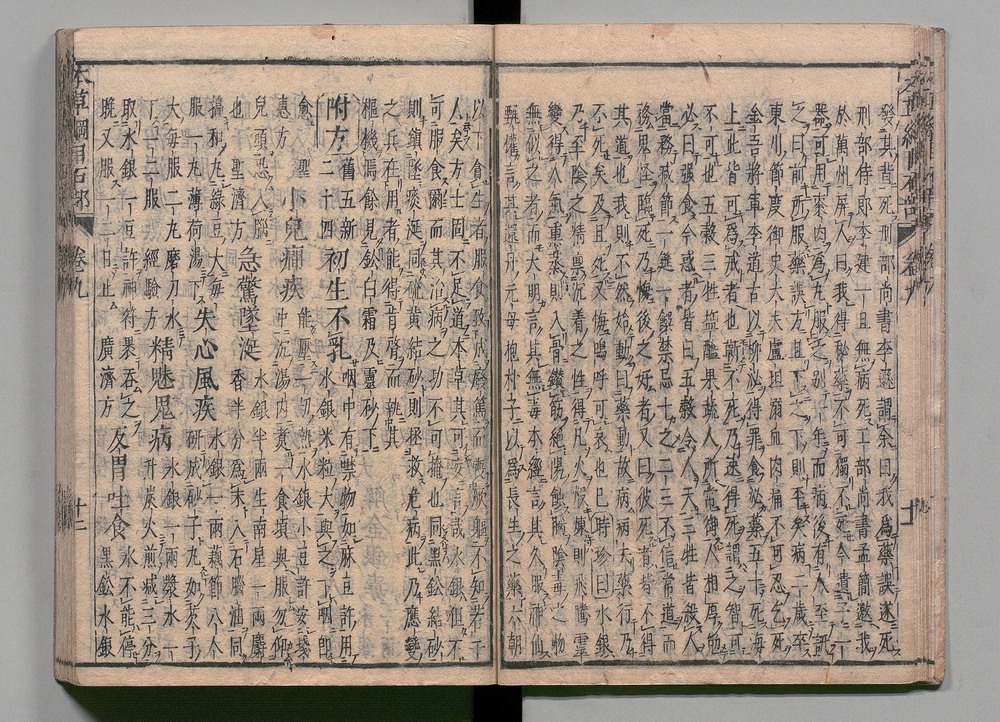 發其背死刑部尚書李遜謂余曰我爲藥誤遂死
刑部侍郎李建一旦無病死工部尚書孟簡邀我
於萬州屏人曰我得秘藥不可獨不死今遺子一
器可用棗肉爲丸服之別一年而病後有人至訊
之曰前所服藥誤方且下之下則平矣病二歲卒
東川節度御史大夫盧坦溺血肉痛不可忍乞死
金吾將軍李道古以柳泌得罪食泌藥五十死海
上此皆可爲戒者也蘄不死乃速得死謂之智可
不可也五穀三牲鹽醯果蔬人所常御人相厚勉
必曰強食今惑者皆曰五穀令人夭三牲皆殺人
當務減節一筵之饌禁忌十之二三不信常道而
務鬼怪臨死乃悔後之好者又曰彼死者皆不得
其道也我則不然始動曰藥動故病病去藥行乃
不死矣及且死又悔嗚呼可哀也已時珍曰水銀
乃至陰之精稟沉着之性得凡火煅煉則飛騰靈
變得人氣熏蒸則入骨鑽筋絕陽蝕腦陰毒之物
無似之者而大明言其無毒本經言其久服神仙
甄權言其還丹元母抱朴子以爲長生之藥六朝
以下貪生者服食致成廢篤而喪厥軀不知若干
人矣方士固不足道本草其可妄言哉水銀但不
可服食爾而其治病之功不可掩也同黑鉛結砂
則鎮墜痰涎同硫黃結砂則拯救危病此乃應變
之兵在用者能得肯綮而執其
樞機焉餘見鉛白霜及靈砂下
附方舊五新二十四初生不乳咽中有噤物如麻豆許用水銀米粒大與之下咽即
愈聖惠方小兒癇疾能壓一切熱水銀小豆許安盞中沉湯內煑一食頃與服勿仰
兒頭恐入腦也聖濟方急驚墜涎水銀半兩生南星一兩麝香半分爲末入石腦油同
搗和丸綠豆大每服一丸薄荷湯下失心風疾水銀一兩藕節八个研成砂子丸如芡子
大每服二丸磨刀水下一二服經驗方精魅鬼病水銀一兩漿水一升炭火煎減三分
取水銀一豆許神符裹吞之晚又服一二日止廣濟方反胃吐食水不能停黑鉛水銀
本草綱目石部 卷九 十二